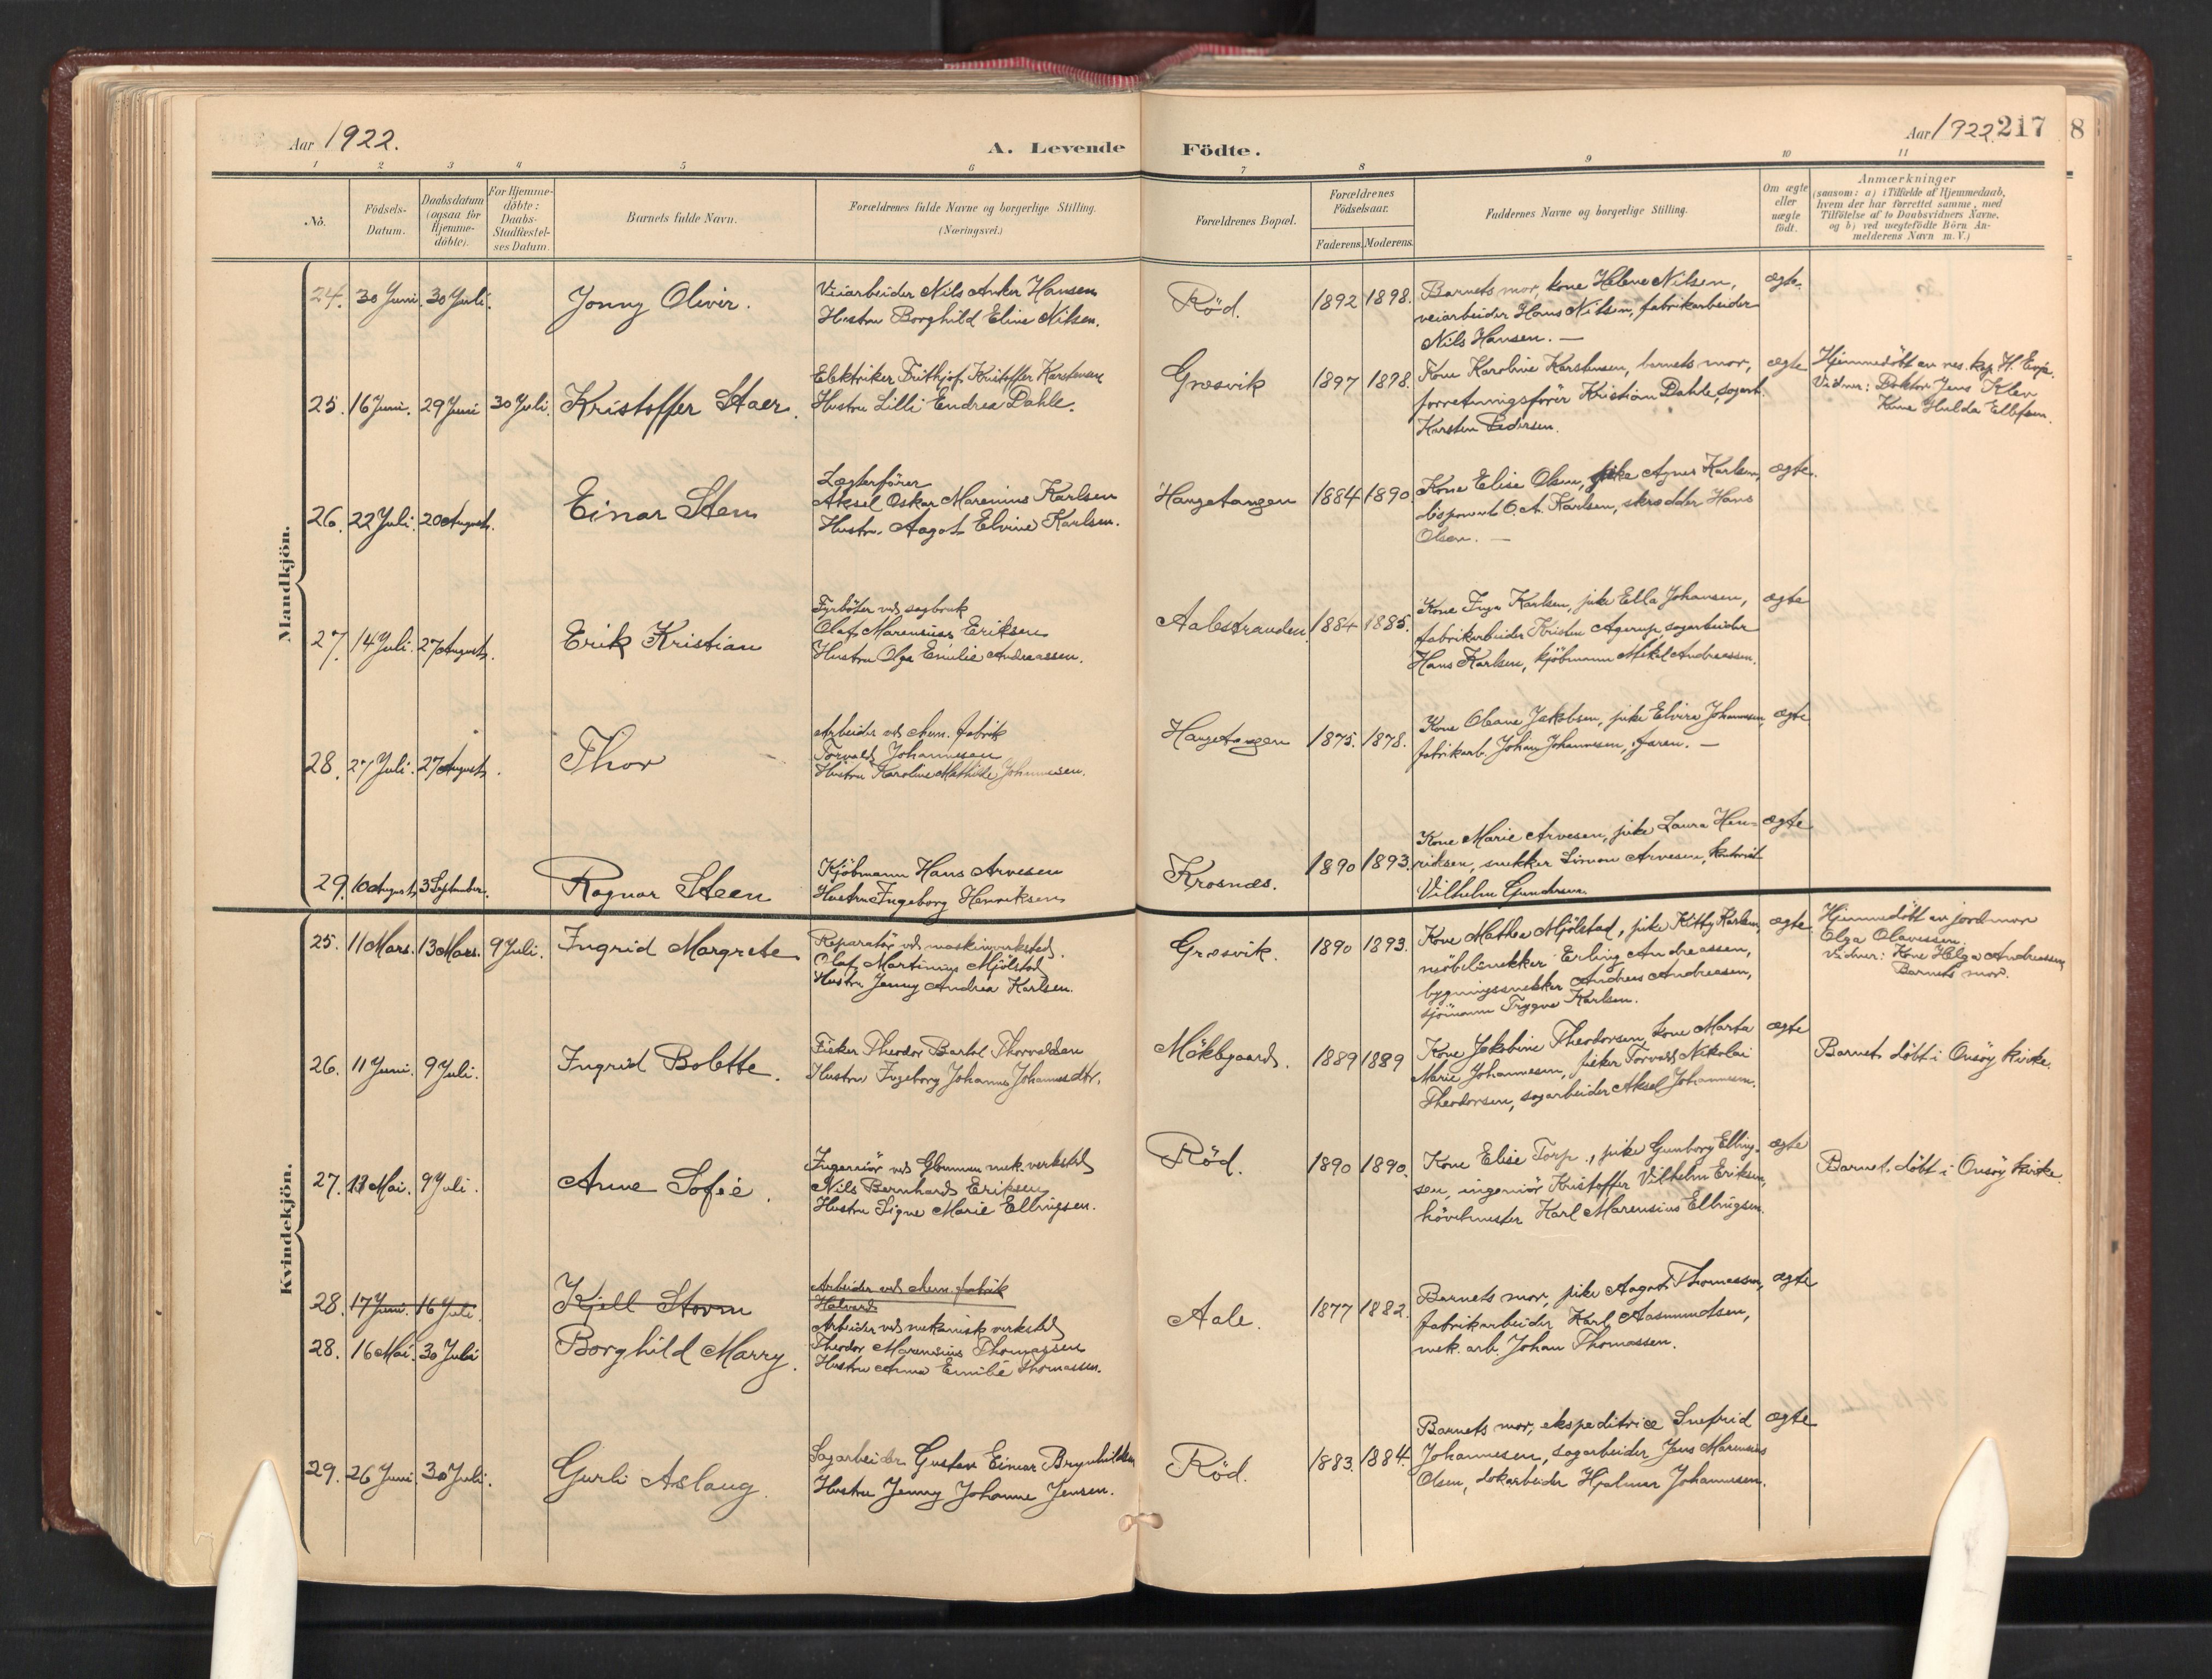 Aar 1922.
A. Levende Födte.
Aar 1922. 217
8
1 2 3 4 5 6 7 8 9 10 11
No.
Födsels-
Datum.
Daabsdatum
(ogsaa for
Hjemme-
döbte).
For Hjemme-
döbte:
Daabs-
Stadfæstel-
ses Datum.
Barnets fulde Navn.
Forældrenes fulde Navne og borgerlige Stilling.
(Næringsvei.)
Forældrenes Bopæl.
Forældrenes
Födselsaar.
Faderens. Moderens.
Faddernes Navne og borgerlige Stilling.
Om ægte
eller
uægte
födt.
Anmærkninger
(saasom: a) i Tilfælde af Hjemmedaab,
hvem der har forrettet samme, med
Tilföielse af to Daabsvidners Navne,
og b) ved uægtefödte Börn An-
melderens Navn m. V.)
Mandkjön.
24. 30 Juni. 30 Juli. Jonny Oliver.
Veiarbeider Nils Anker Hansen
Hustru Borghild Eline Nilsen.
Röd. 1892 1898.
Barnets mor, kone Helene Nilsen,
veiarbeider Hans Nilsen, fabrikarbeider
Nils Hansen. —
ægte.
25. 16 Juni. 29 Juni 30 Juli. Kristoffer Staer.
Elektriker Frithjof Kristoffer Karstensen
Hustru Lilli Endrea Dahle.
Græsvik 1897 1898.
Kone Karoline Karstensen, barnets mor,
forretningsförer Kristian Dahle, sagarb.
Karsten Pedersen.
ægte
Hjemmedöbt av res. kap. H.
Vidner: Doktor Jens Klev
Kone Hulda
26. 22 Juli. 20 August. Einar Sten
Lægterförer
Aksel Oskar Marenius Karlsen
Hustru Aagot Elvine Karlsen.
Haugetangen 1884 1890.
Kone Elise Olsen, pike Agnes Karlsen,
O. A. Karlsen, skrædder Hans
Olsen. —
ægte.
27. 14 Juli. 27 August. Erik Kristian
Fyrböter ved sagbruk
Olaf Marensius Eriksen
Hustru Olga Emilie Andreassen.
Aalestranden 1884 1885.
Kone Inga Karlsen, pike Ella Johansen,
fabrikarbeider Kristen Agerup, sagarbeider
Hans Karlsen, kjöbmann Mikal Andreassen.
ægte
28. 27 Juli. 27 August. Thor
Arbeider ved chem. fabrik
Torvald Johannesen
Hustru Karoline Mathilde Johannesen.
Haugetangen 1875. 1878.
Kone Oleane Jakobsen, pike Elvira Johannesen,
fabrikarb. Johan Johannesen, faren. —
ægte
29. 10 August 3 September. Ragnar Steen
Kjöbmann Hans Arvesen
Hustru Ingeborg Henriksen
Krosnæs. 1890 1893.
Kone Marie Arvesen, pike Laura Hen-
riksen, snekker Simon Arvesen, kontorist
Vilhelm Gundersen.
ægte
Kvindekjön.
25. 11 Mars. 13 Mars. 9 Juli. Ingrid Margrete
Reparatör ved maskinverksted.
Olaf Martinius Mjölstad
Hustru Jenny Andrea Karlsen.
Græsvik. 1890 1893.
Kone Mathea Mjölstad, pike Kitty Karlsen,
möbelsnekker Erling Andreassen,
bygningssnekker Andreas Andreasen,
sjömann Trygve Karlsen.
ægte
Hjemmedöbt av jordmor
Olga Olavessen,
Vidner: Kone Helga Andreassen
Barnets mor.
26. 11 Juni. 9 Juli. Ingrid Bolette.
Fisker Theodor Bartol Thorvaldsen
Hustru Ingeborg Johanne Johannesdtr.
Möklegaard. 1889 1889
Kone Jakobine Theodorsen, kone Marta
Marie Johannesen, fisker Torvald Nikolai
Theodorsen, sagarbeider Aksel Johannesen.
ægte
Barnet döbt i Onsöy kirke.
27. 13 Mai. 9 Juli. Anne Sofie.
Ingeniör ved Glommen mek. verksted
Nils Bernhard Eriksen
Hustru Signe Marie Ellingsen.
Röd. 1890 1890.
Kone Elise Torp, pike Gunborg Elling-
sen, ingeniör Kristoffer Vilhelm Eriksen,
hövelmester Karl Marensius Ellingsen.
ægte
Barnet döbt i Onsöy kirke.
28. 17 Juni. 16 Juli. Kjell Storm
Arbeider ved chem. fabrik
Halvard
28. 16 Mai. 30 Juli Borghild Marry.
Arbeider ved mekanisk verksted
Theodor Marensius Thomassen
Hustru Anna Emilie Thomassen.
Aale. 1877 1882.
Barnets mor, pike Aagot Thomassen,
fabrikarbeider Karl Aasmundsen,
mek. arb. Johan Thomassen.
ægte
29. 26 Juni. 30 Juli. Gurli Aslaug.
Sagarbeider Gustav Einar Brynhildsen
Hustru Jenny Johanne Jensen.
Röd. 1883. 1884.
Barnets mor, ekspeditrice Snefrid
Johannesen, sagarbeider Jens Marensius
Olsen, dokarbeider Hjalmar Johannesen.
ægte